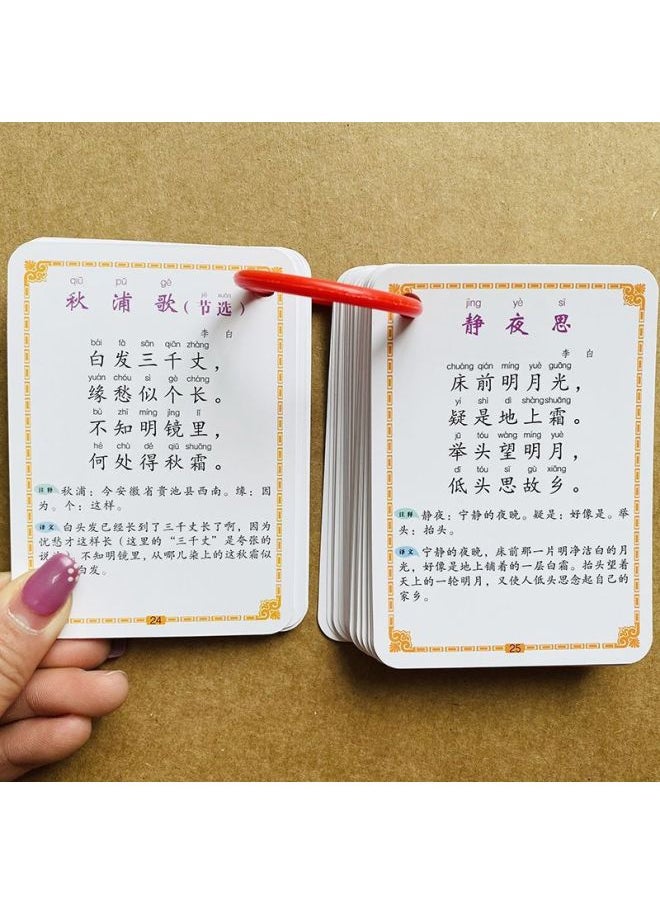 qiū pǔ gē jié xuǎn
秋浦歌(节选)
李白
bái fà sān qiān zhàng
白发三千丈，
yuán chóu sì gè cháng
缘愁似个长。
bù zhī míng jìng lǐ
不知明镜里，
hé chù dé qiū shuāng
何处得秋霜。
注释 秋浦：今安徽省贵池县西南。缘：因
为。个：这样。
译文 白头发已经长到了三千丈长了啊，因为
忧愁才这样长（这里的“三千丈”是夸张的
说 ）。不知明镜里，从哪儿染上的这秋霜似
白发。
24
jìng yè sī
静夜思
李白
chuáng qián míng yuè guāng
床前明月光，
yí shì dì shàng shuāng
疑是地上霜。
jǔ tóu wàng míng yuè
举头望明月，
dī tóu sī gù xiāng
低头思故乡。
注释 静夜：宁静的夜晚。疑是：好像是。举
头：抬头。
译文 宁静的夜晚，床前那一片明净洁白的月
光，好像是地上铺着的一层白霜。抬头望着
天上的一轮明月，又使人低头思念起自己的
家乡。
25